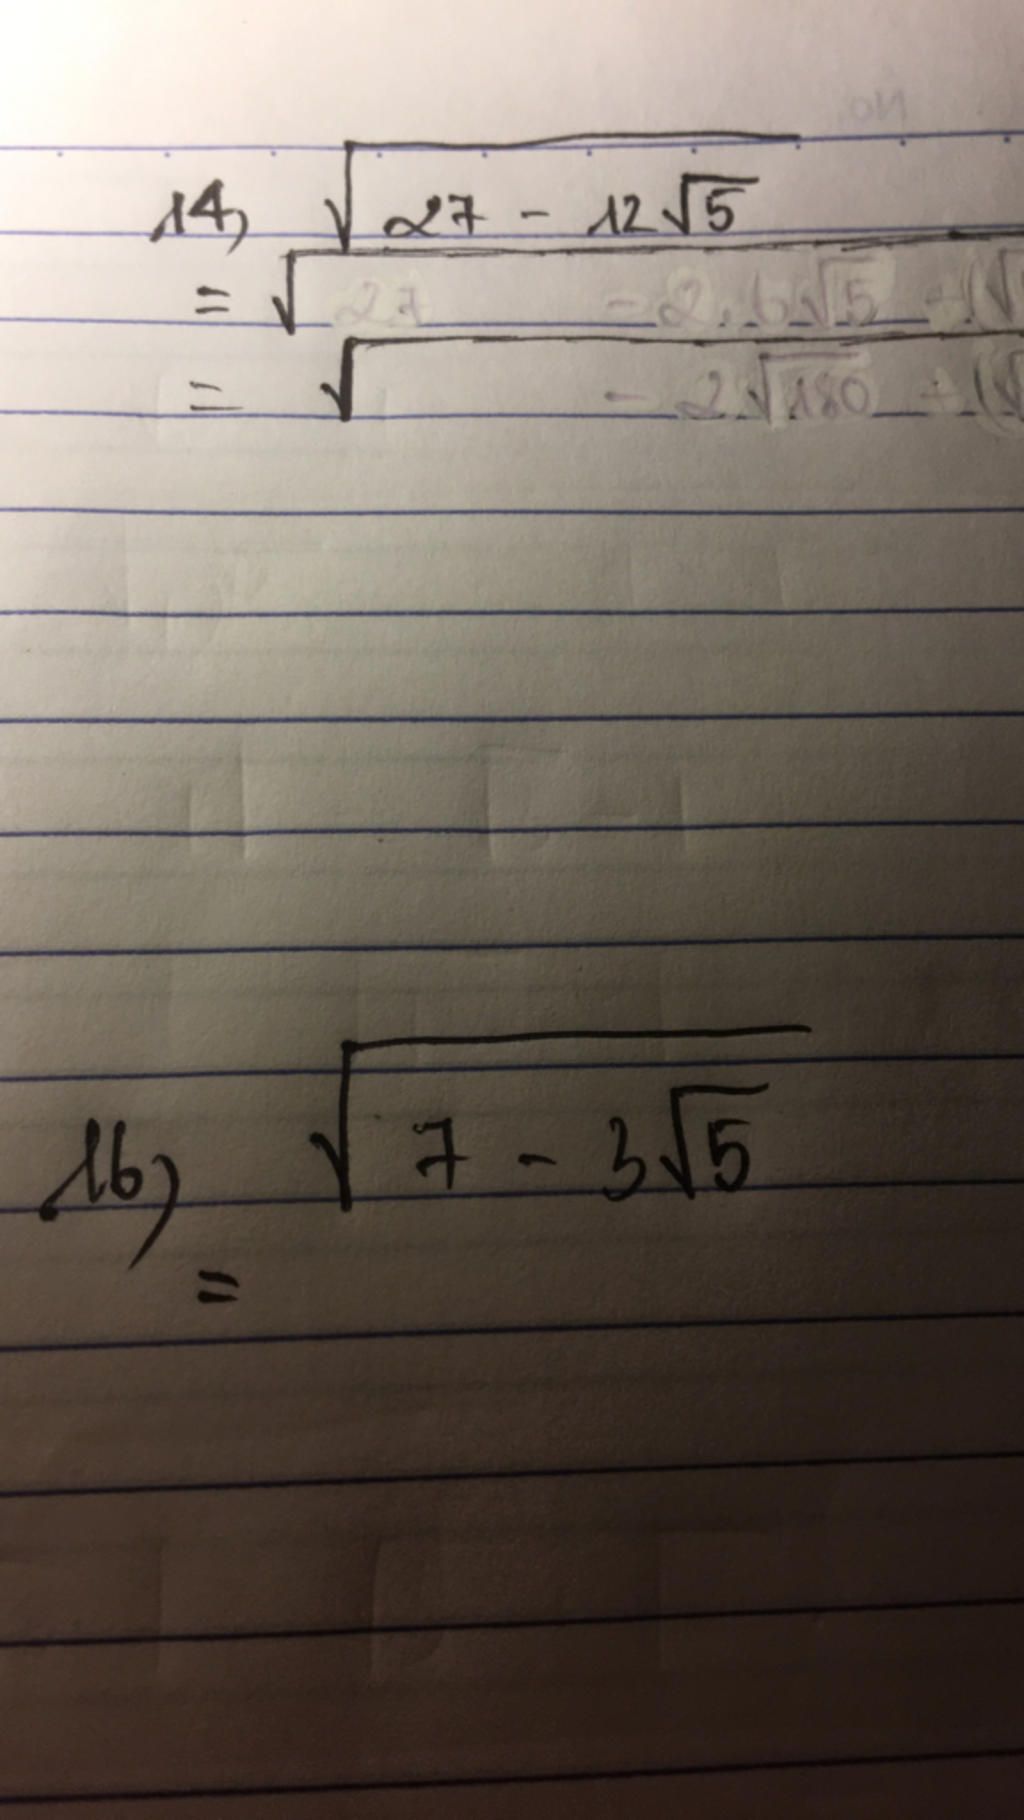 14) √(27 - 12√5)
= √(27 - 2.6√5 + (√
= √( - 2√180 + (√
16) √(7 - 3√5)
=